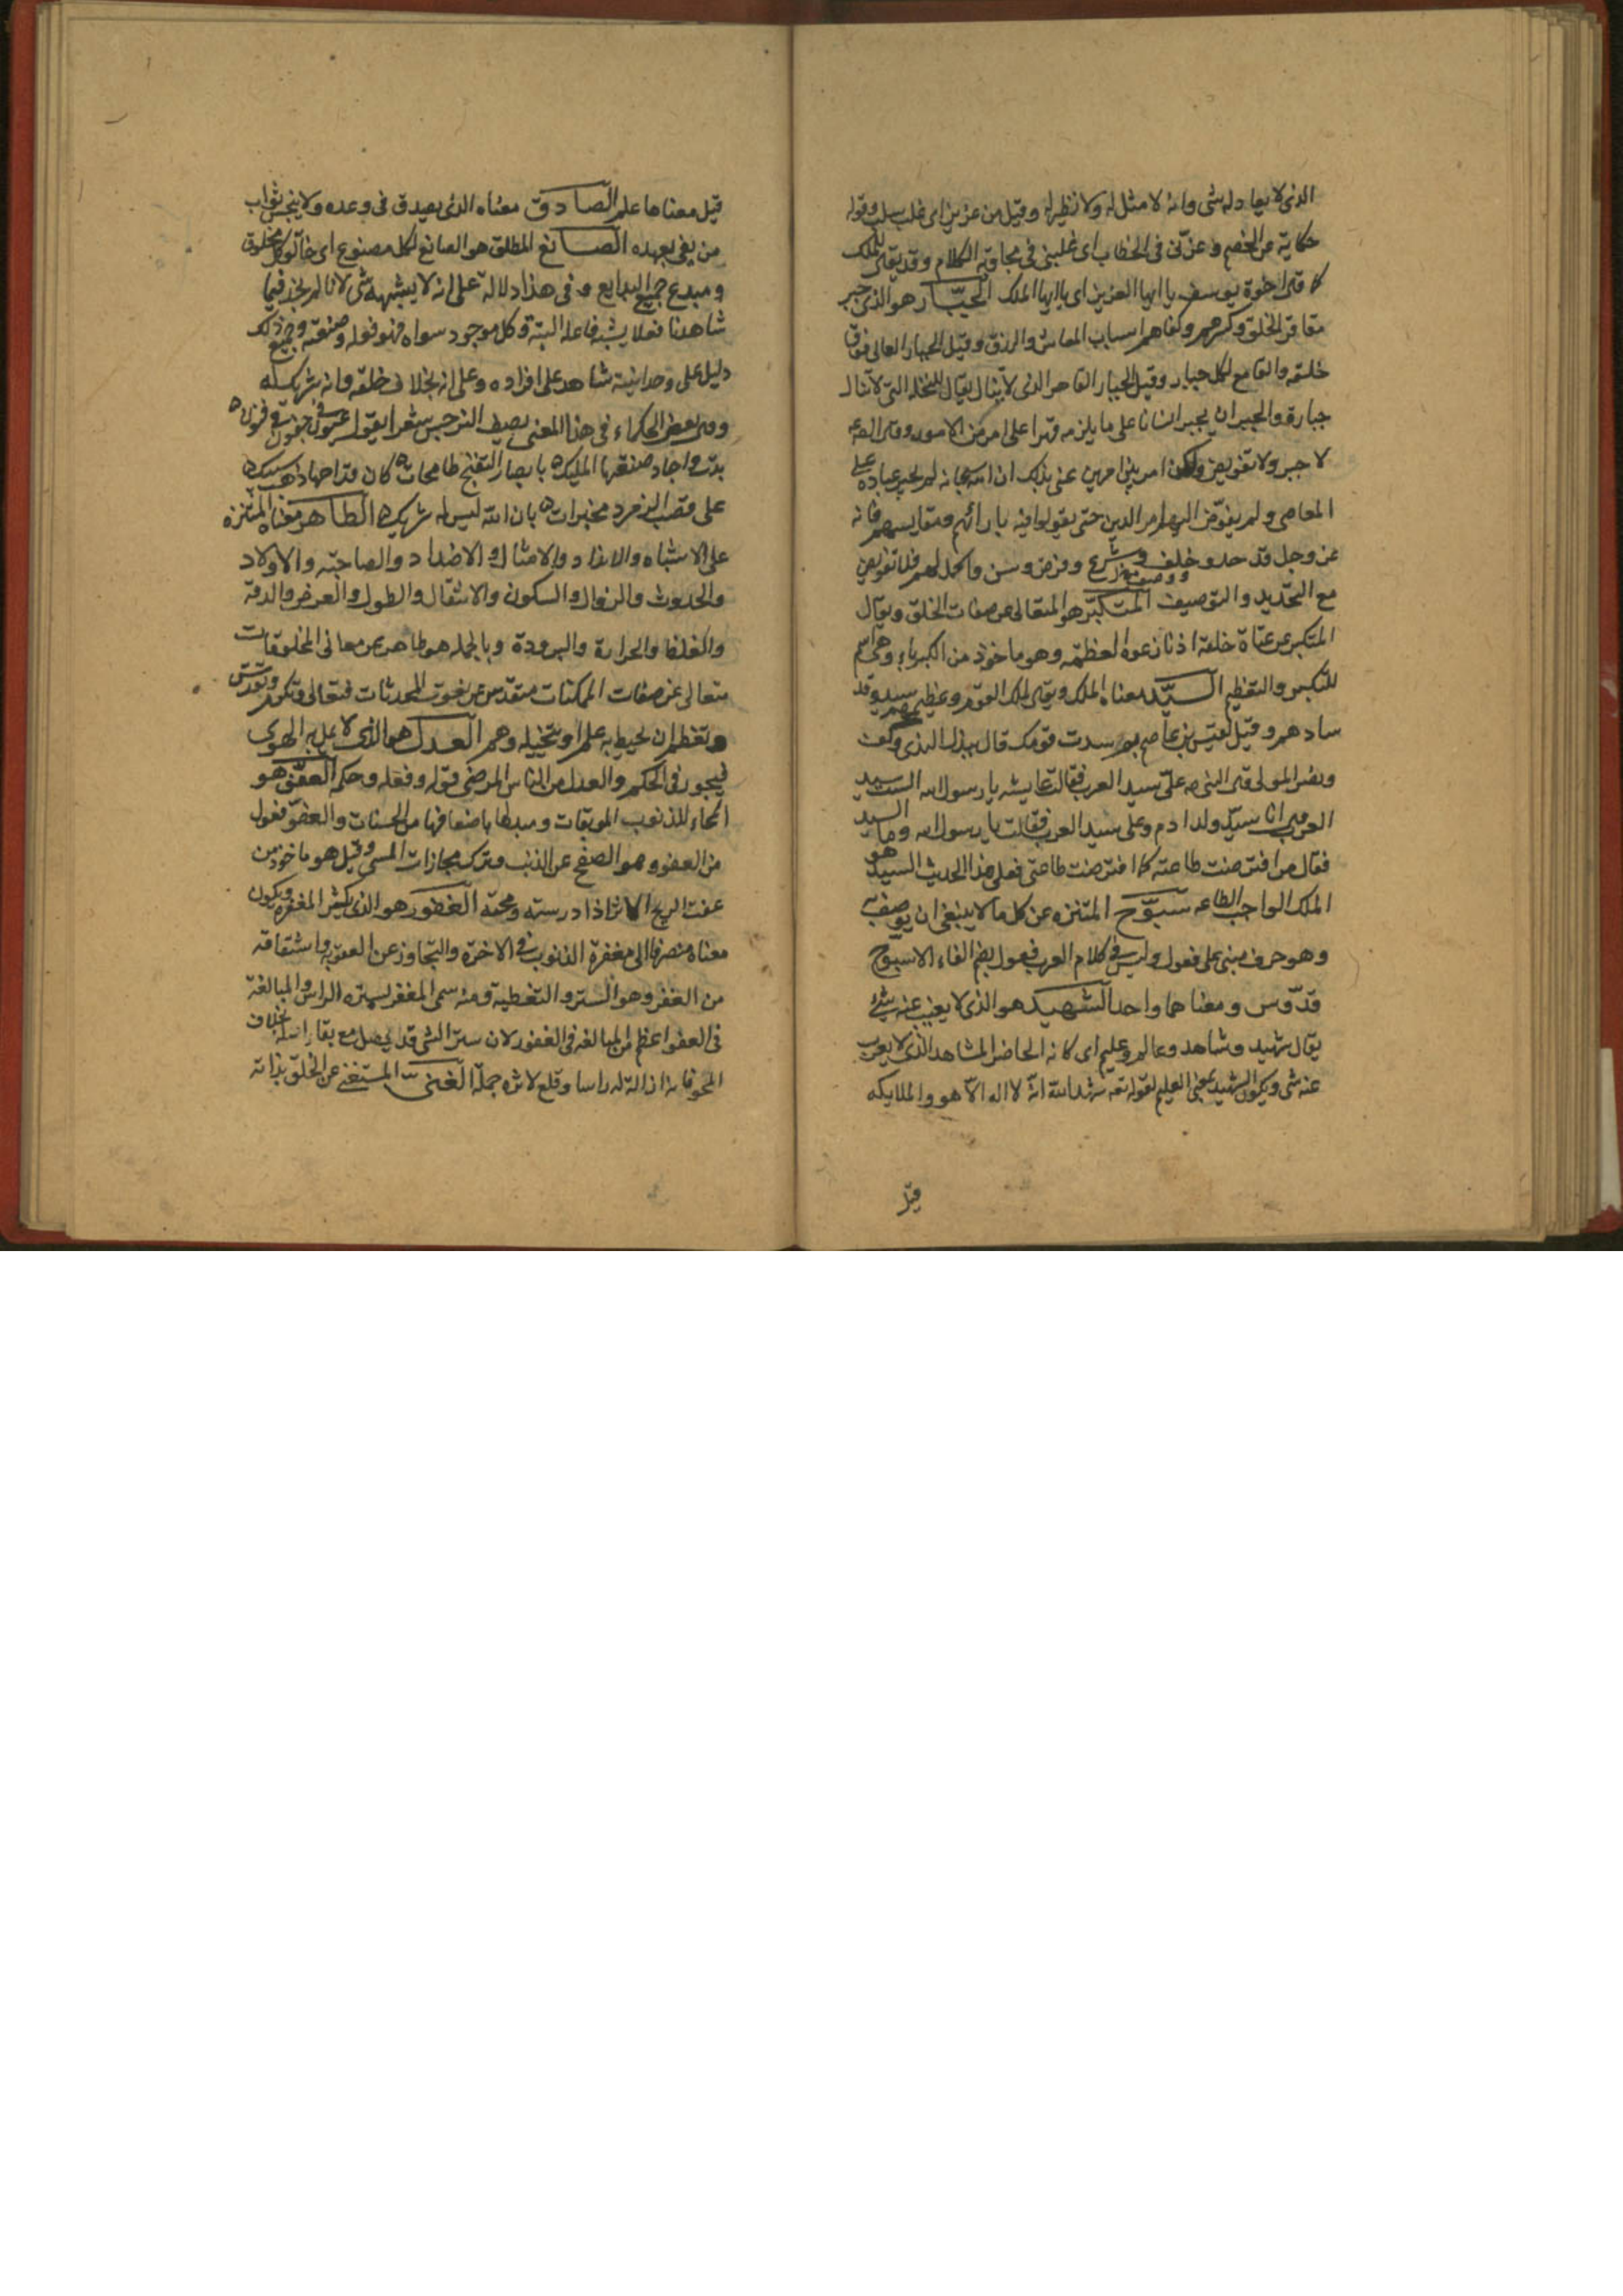 الذى لا يعادله شى وانه لا مثل له ولا نظير له وقيل من عز بز اى غلب سلب وقوله
حكاية عن الخصم وعزنى فى الخطاب اى غلبنى فى مجاوبة الكلام وقد يقال للملك
كما قال اخوة يوسف يا ايها العزيز اى يا ايها الملك الجبار هو الذى جبر
مفاقر الخلق وكسرهم وكفاهم اسباب المعاش والرزق وقيل الجبار العالى فوق
خلقه والقامع لكل جبار وقيل الجبار القاهر الذى لا ينال يقال للنخلة التى لا تنال
جبارة والجبر ان يجبر انسانا على ما يلزمه قهرا على امر من الامور وقال الصه
لا جبر ولا تفويض ولكن امر بين امرين عنى بذلك ان الله سبحانه لم يجبر عباده على
المعاصى ولم يفوض اليهم امر الدين حتى يقولوا فيه بارائهم ومقايسهم فانه
عز وجل قد حد و خلف وشرع وفرض وسن واكمل لهم فلا تفويض
مع التحديد والتوصيف المتكبر هو المتعالى عن صفات الخلق ويقال
المتكبر عن عتاة خلقه اذ نازعوه العظمة وهو ماخوذ من الكبرياء وهى اسم
للتكبر والتعظيم السيد معناه الملك ويقال لملك القوم وعظيمهم سيد وقد
سادهم وقيل لقيس بن عاصم بم سدت قومك قال ببذل الندى وكف الاذى
ونصر المولى وقال النبى صه على سيد العرب فقالت عايشه يا رسول الله الست سيد
العرب قال انا سيد ولد ادم وعلى سيد العرب فقالت يا رسول الله وما السيد
فقال من افترضت طاعته كما افترضت طاعتى فعلى هذا الحديث السيد هو
الملك الواجب الطاعه سبوح المتنزه عن كل ما لا ينبغى ان يوصف به
وهو حرف مبنى على فعول وليس فى كلام العرب فعول بضم الفاء الا سبوح
قدوس ومعناهما واحد الشهيد هو الذى لا يغيب عنه شئ
يقال شهيد وشاهد وعالم وعليم اى كانه الحاضر المشاهد الذى لا يعزب
عنه شى ويكون الشهيد بمعنى العليم لقوله تعه شهد الله انه لا اله الا هو والملايكه
قيل
قيل معناها علم الصادق معناه الذى يصدق فى وعده ولا يبخس ثواب
من يفى بعهده الصانع المطلق هو الصانع لكل مصنوع اى خالق كل مخلوق
ومبدع جميع البدايع وفى هذا دلالة على انه لا يشبهه شى لانا لم نجد فيما
شاهدنا فعلا يشبه فاعله البتة وكل موجود سواه فهو فعله وصنعته وجميع ذلك
دليل على وحدانيته شاهد على افراده وعلى انه بخلاف خلقه وانه شريك له
وقال بعض الحكماء فى هذا المعنى يصف النرجس شعرا يقول عيون فى جفون فى فنون
بدت واجاد صنعتها المليك بابصار التغنج طامحات كان حداقها ذهب سبيك
على قصب الزمرد مخبرات بان الله ليس له شريك الطاهر معناه المتنزه
على الاشباه والانداد والامثال والاضداد والصاحبة والاولاد
والحدوث والزوال والسكون والانتقال والطول والعرض والدقة
والغلظ والحرارة والبرودة وبالجمله هو طاهر عن معانى المخلوقات
متعالى عن صفات الممكنات متقدس عن نعوت المحدثات فتعالى وتكرم وتقدس
وتعظم ان يحيط به علم او يتخيله وهم العدل هو الذى لا يميل به الهوى
فيجور فى الحكم والعدل من الناس المرضى قوله وفعله وحكمه العفو هو
المحاء للذنوب الموبقات ومبدلها باضعافها من الحسنات والعفو فعول
من العفو وهو الصفح عن الذنب وترك مجازات المسى وقيل هو ماخوذ من
عفت الريح الاثر اذا درسته ومحته الغفور هو الذى يكثر المغفرة ويكون
معناه منصرفا الى مغفرة الذنوب فى الاخرة والتجاوز عن العقوبة واشتقاقه
من الغفر وهو الستر والتغطية ومنه سمى المغفر لستره الراس والمبالغة
فى العفو اعظم من المبالغه فى الغفور لان ستر الشى قد يحصل مع بقاء اصله بخلاف
المحو فانه ازالة له راسا وقلع لاثره جملة الغنى المستغنى عن الخلق بذاته